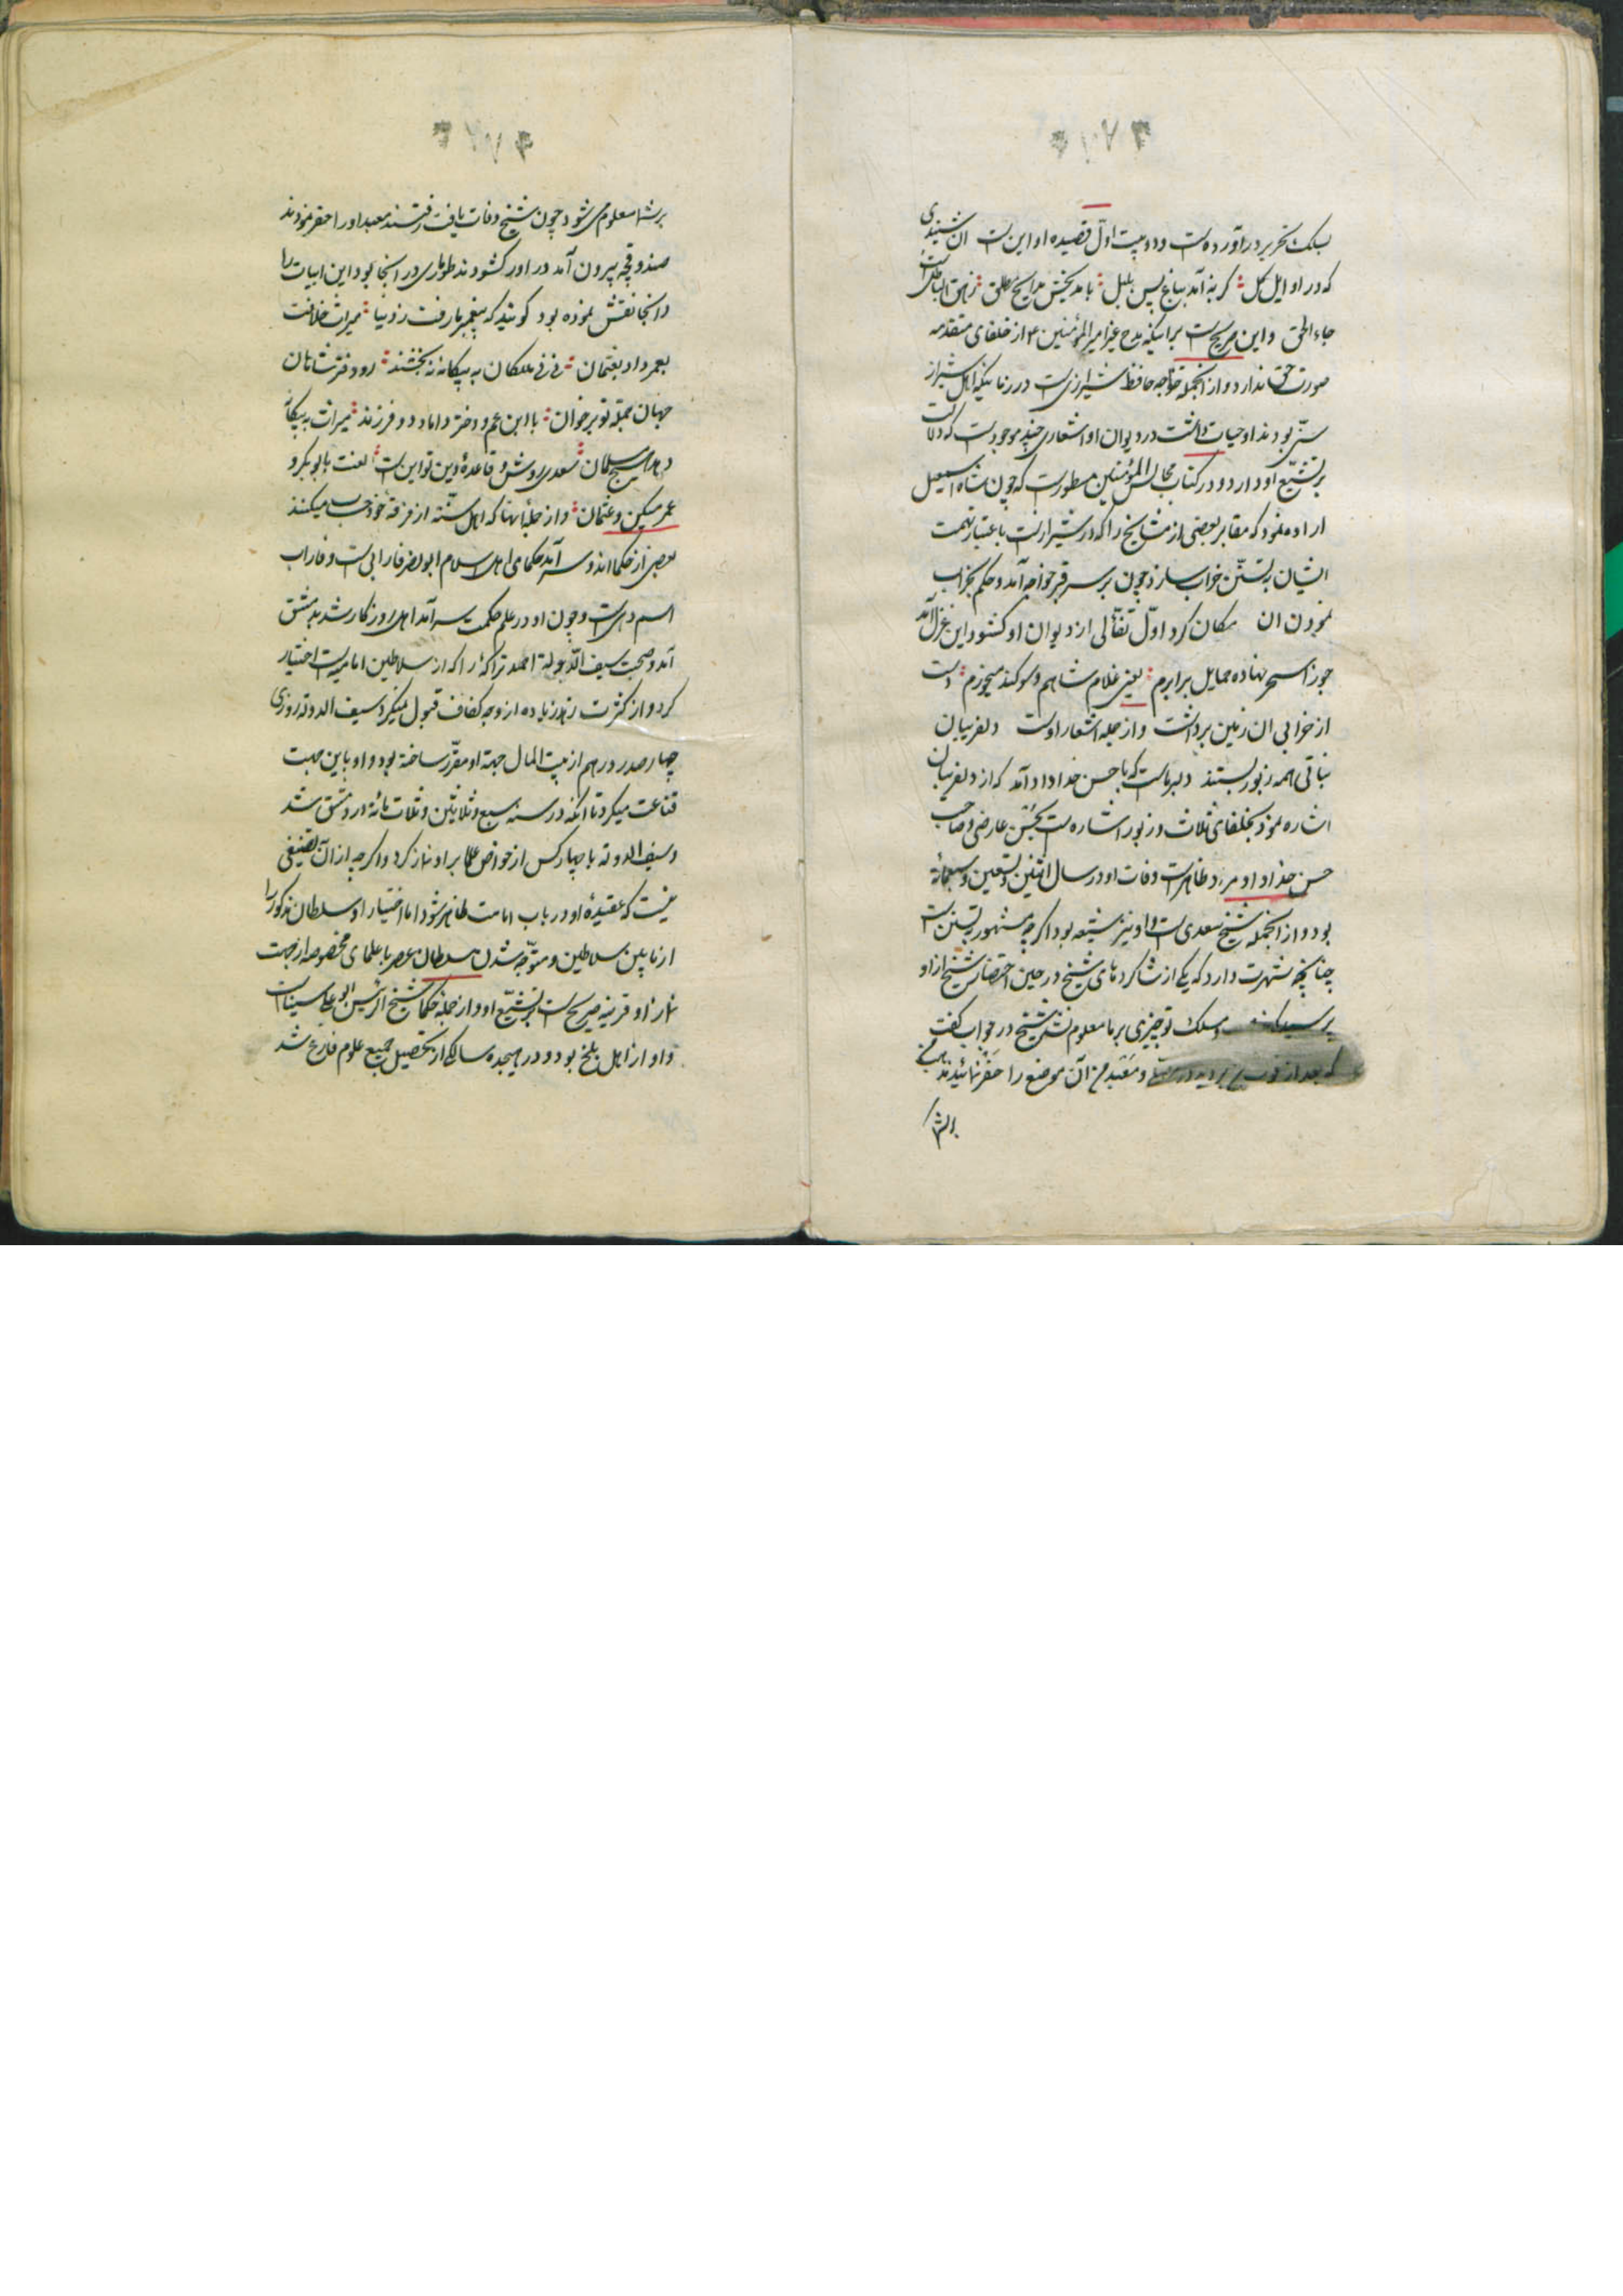 بسلك تحریر در آورده است و دو بیت اول قصیده او این است ان شنیدی
که در اوایل کل گربه آمد بباغ پس بلبل با مد بخش مدایح زهق الباطل است
جاء الحق و این صریح است برا ینکه مدح غیر امیر المؤمنین ۴ از خلفای متقدمه
صورت حق ندارد و از انجمله خواجه حافظ شیرازی است در زمانیکه اهل شیراز
سنّی بودند او حیات داشت در دیوان او اشعاری چند موجود است که دلالت
بر تشیّع او دارد و در کتاب مجالس المؤمنین مسطور است که چون شاه اسمعیل
اراده نمود که مقابر بعضی از مشایخ را که در شیراز است باعتبار تهمت
ایشان به تسنّن خراب سازد چون بر سر قبر خواجه آمد و حکم بخراب
نمودن ان مکان کرد اوّل تفّالی از دیوان او کشود این غزل آمد
جوزا سحر نهاده حمایل برابرم یعنی غلام شاهم و سوکند میخورم دست
از خرابی ان زمین برداشت و از جمله اشعار اوست دلفریبان
نباتی همه زیور بستند دلبر ماست که با حسن خدا داد آمد که از دلفریبان
اشاره نمود بخلفای ثلاث و زیور اشاره است بحسن عارضی و صاحب
حسن خداداد او مراد ظاهر است وفات او در سال اثنین و تسعین و سبعمائة
بود و از انجمله شیخ سعدی است و او نیز شیعه بود اگر چه مشهور بتسنن است
چنانچه شهرت دارد که یکی از شاکردهای شیخ در حین احتضار شیخ از او
پرسید که مسلك تو چیزی بر ما معلوم نشد شیخ در جواب کفت
که بعد از و معبد من آن موضع را حفر نمائید مذهب من
بر شما
بر شما معلوم می شود چون شیخ وفات یافت رفتند معبد او را حفر نمودند
صندوقچه بیرون آمد در او را کشودند طوماری در انجا بود این ابیات را
در انجا نقش نموده بود کویند که پیغمبر ما رفت ز دنیا میراث خلافت
بعمر داد بعثمان نی نی ملکان به بیکانه نه بخشند رو دفتر شاهان
جهان جمله تو برخوان با ابن عم و دختر و داماد دو فرزند میراث به بیکانه
دهد هیچ مسلمان سعدی روش و قاعدۀ دین تو این است لعنت بابو بکر و
عمر میکن و عثمان و از جمله آنها که اهل سنّة از فرقۀ خود حساب میکنند
بعضی از حکما اند و سر آمد حکمای اهل اسلام ابو نصر فارابی است و فاراب
اسم دهی است و چون او در علم حکمت سر آمد اهل روزکار شد بدمشق
آمد و صحبت سیف الدوله احمد را که از سلاطین امامیه است اختیار
کرد و از کثرت زهد زیاده از وجه کفاف قبول نمیکرد سیف الدوله روزی
چهار صد درهم از بیت المال جهة او مقرّر ساخته بود و او باین جهت
قناعت میکرد تا انکه در سنه سبع و ثلاثین و ثلاث مائة در دمشق شد
و سیف الدوله با چهار کس از خواص علما بر او نماز کرد و اگر چه از آن تصنیفی
نیست که عقیدۀ او در باب امامت ظاهر شود اما اختیار او سلطان مذکور را
از مابین سلاطین و متوّجه شدن سلطان عصر با علمای مخصوصه از جهت
نماز او قرینه صریح است بر تشیّع او و از جمله حکما شیخ الرئیس ابو علی سیناست
و او از اهل بلخ بود و در هیجده سالکی از تحصیل جمیع علوم فارغ شد